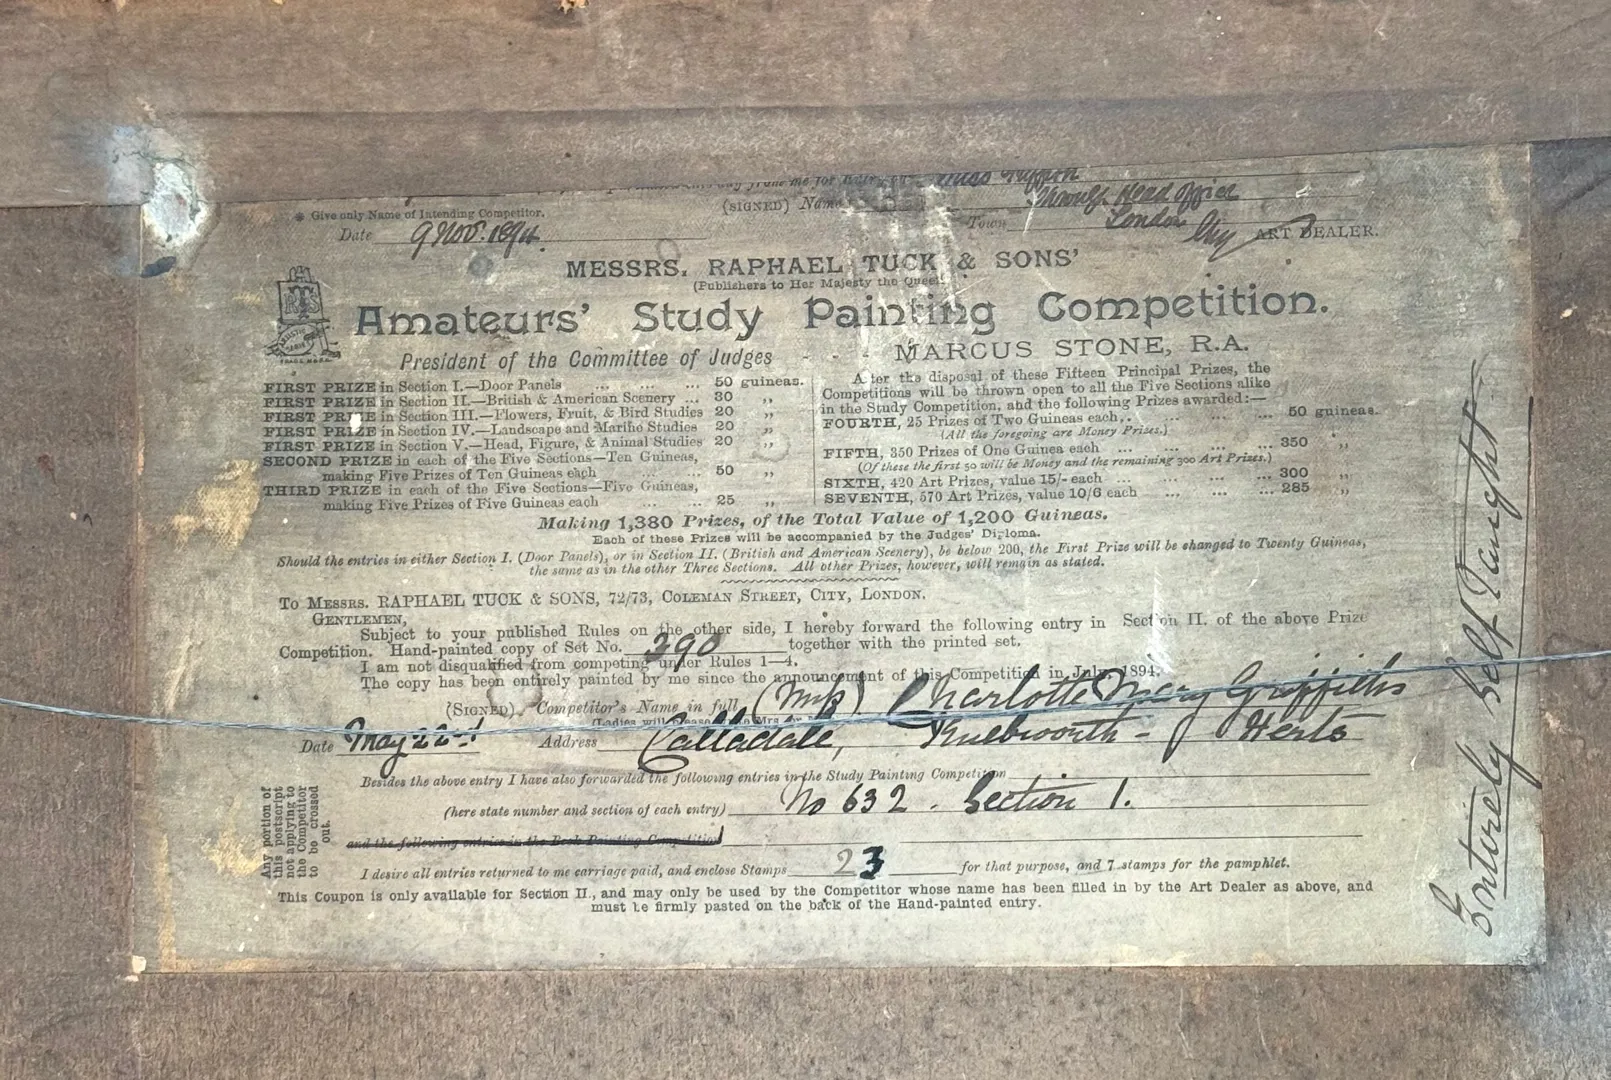 (SIGNED) Name
Through Head Office
* Give only Name of Intending Competitor.
Town London City ART DEALER.
Date 9 Nov. 1894.
MESSRS. RAPHAEL TUCK & SONS'
(Publishers to Her Majesty the Queen)
Amateurs' Study Painting Competition.
TRADE MARK
President of the Committee of Judges - - - MARCUS STONE, R.A.
FIRST PRIZE in Section I.—Door Panels ... ... ... 50 guineas.
FIRST PRIZE in Section II.—British & American Scenery ... 30 „
FIRST PRIZE in Section III.—Flowers, Fruit, & Bird Studies 20 „
FIRST PRIZE in Section IV.—Landscape and Marine Studies 20 „
FIRST PRIZE in Section V.—Head, Figure, & Animal Studies 20 „
SECOND PRIZE in each of the Five Sections—Ten Guineas,
making Five Prizes of Ten Guineas each ... ... 50 „
THIRD PRIZE in each of the Five Sections—Five Guineas,
making Five Prizes of Five Guineas each ... ... 25 „
After the disposal of these Fifteen Principal Prizes, the
Competitions will be thrown open to all the Five Sections alike
in the Study Competition, and the following Prizes awarded:—
FOURTH, 25 Prizes of Two Guineas each... ... ... ... 50 guineas.
(All the foregoing are Money Prizes.)
FIFTH, 350 Prizes of One Guinea each ... ... ... ... 350 „
(Of these the first 50 will be Money and the remaining 300 Art Prizes.)
SIXTH, 420 Art Prizes, value 15/- each ... ... ... ... 300 „
SEVENTH, 570 Art Prizes, value 10/6 each ... ... ... 285 „
Making 1,380 Prizes, of the Total Value of 1,200 Guineas.
Each of these Prizes will be accompanied by the Judges' Diploma.
Should the entries in either Section I. (Door Panels), or in Section II. (British and American Scenery), be below 200, the First Prize will be changed to Twenty Guineas,
the same as in the other Three Sections. All other Prizes, however, will remain as stated.
To MESSRS. RAPHAEL TUCK & SONS, 72/73, COLEMAN STREET, CITY, LONDON.
GENTLEMEN,
Subject to your published Rules on the other side, I hereby forward the following entry in Section II. of the above Prize
Competition. Hand-painted copy of Set No. 390 together with the printed set.
I am not disqualified from competing under Rules 1—4.
The copy has been entirely painted by me since the announcement of this Competition in July, 1894.
(SIGNED) Competitor's Name in full (Miss) Charlotte Mary Griffiths
(Ladies will please
Date May 22nd Address Calladale, Knebworth - Herts
Besides the above entry I have also forwarded the following entries in the Study Painting Competition
(here state number and section of each entry) No 632. Section 1.
and the following entries in the Book Painting Competition
Any portion of
this postscript
not applying to
the Competitor
to be crossed
out.
I desire all entries returned to me carriage paid, and enclose Stamps 23 for that purpose, and 7 stamps for the pamphlet.
This Coupon is only available for Section II., and may only be used by the Competitor whose name has been filled in by the Art Dealer as above, and
must be firmly pasted on the back of the Hand-painted entry.
Entirely Self Taught